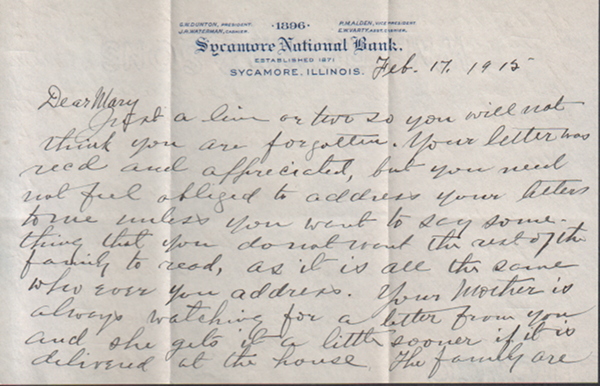 S.H. DURTON, PRESIDENT.
J.H. WATERMAN, CASHIER.
·1896·
P.M. ALDEN, VICE PRESIDENT.
E.W. VARTY, ASST. CASHIER.
Sycamore National Bank.
ESTABLISHED 1871
SYCAMORE, ILLINOIS.
Feb. 17. 1915
Dear Mary
Just a line or two so you will not
think you are forgotten. Your letter was
recd and appreciated, but you need
not feel obliged to address your letters
to me unless you want to say some-
thing that you do not want the rest of the
family to read, as it is all the same
who ever you address. Your Mother is
always watching for a letter from you
and she gets it a little sooner if it is
delivered at the house. The family are